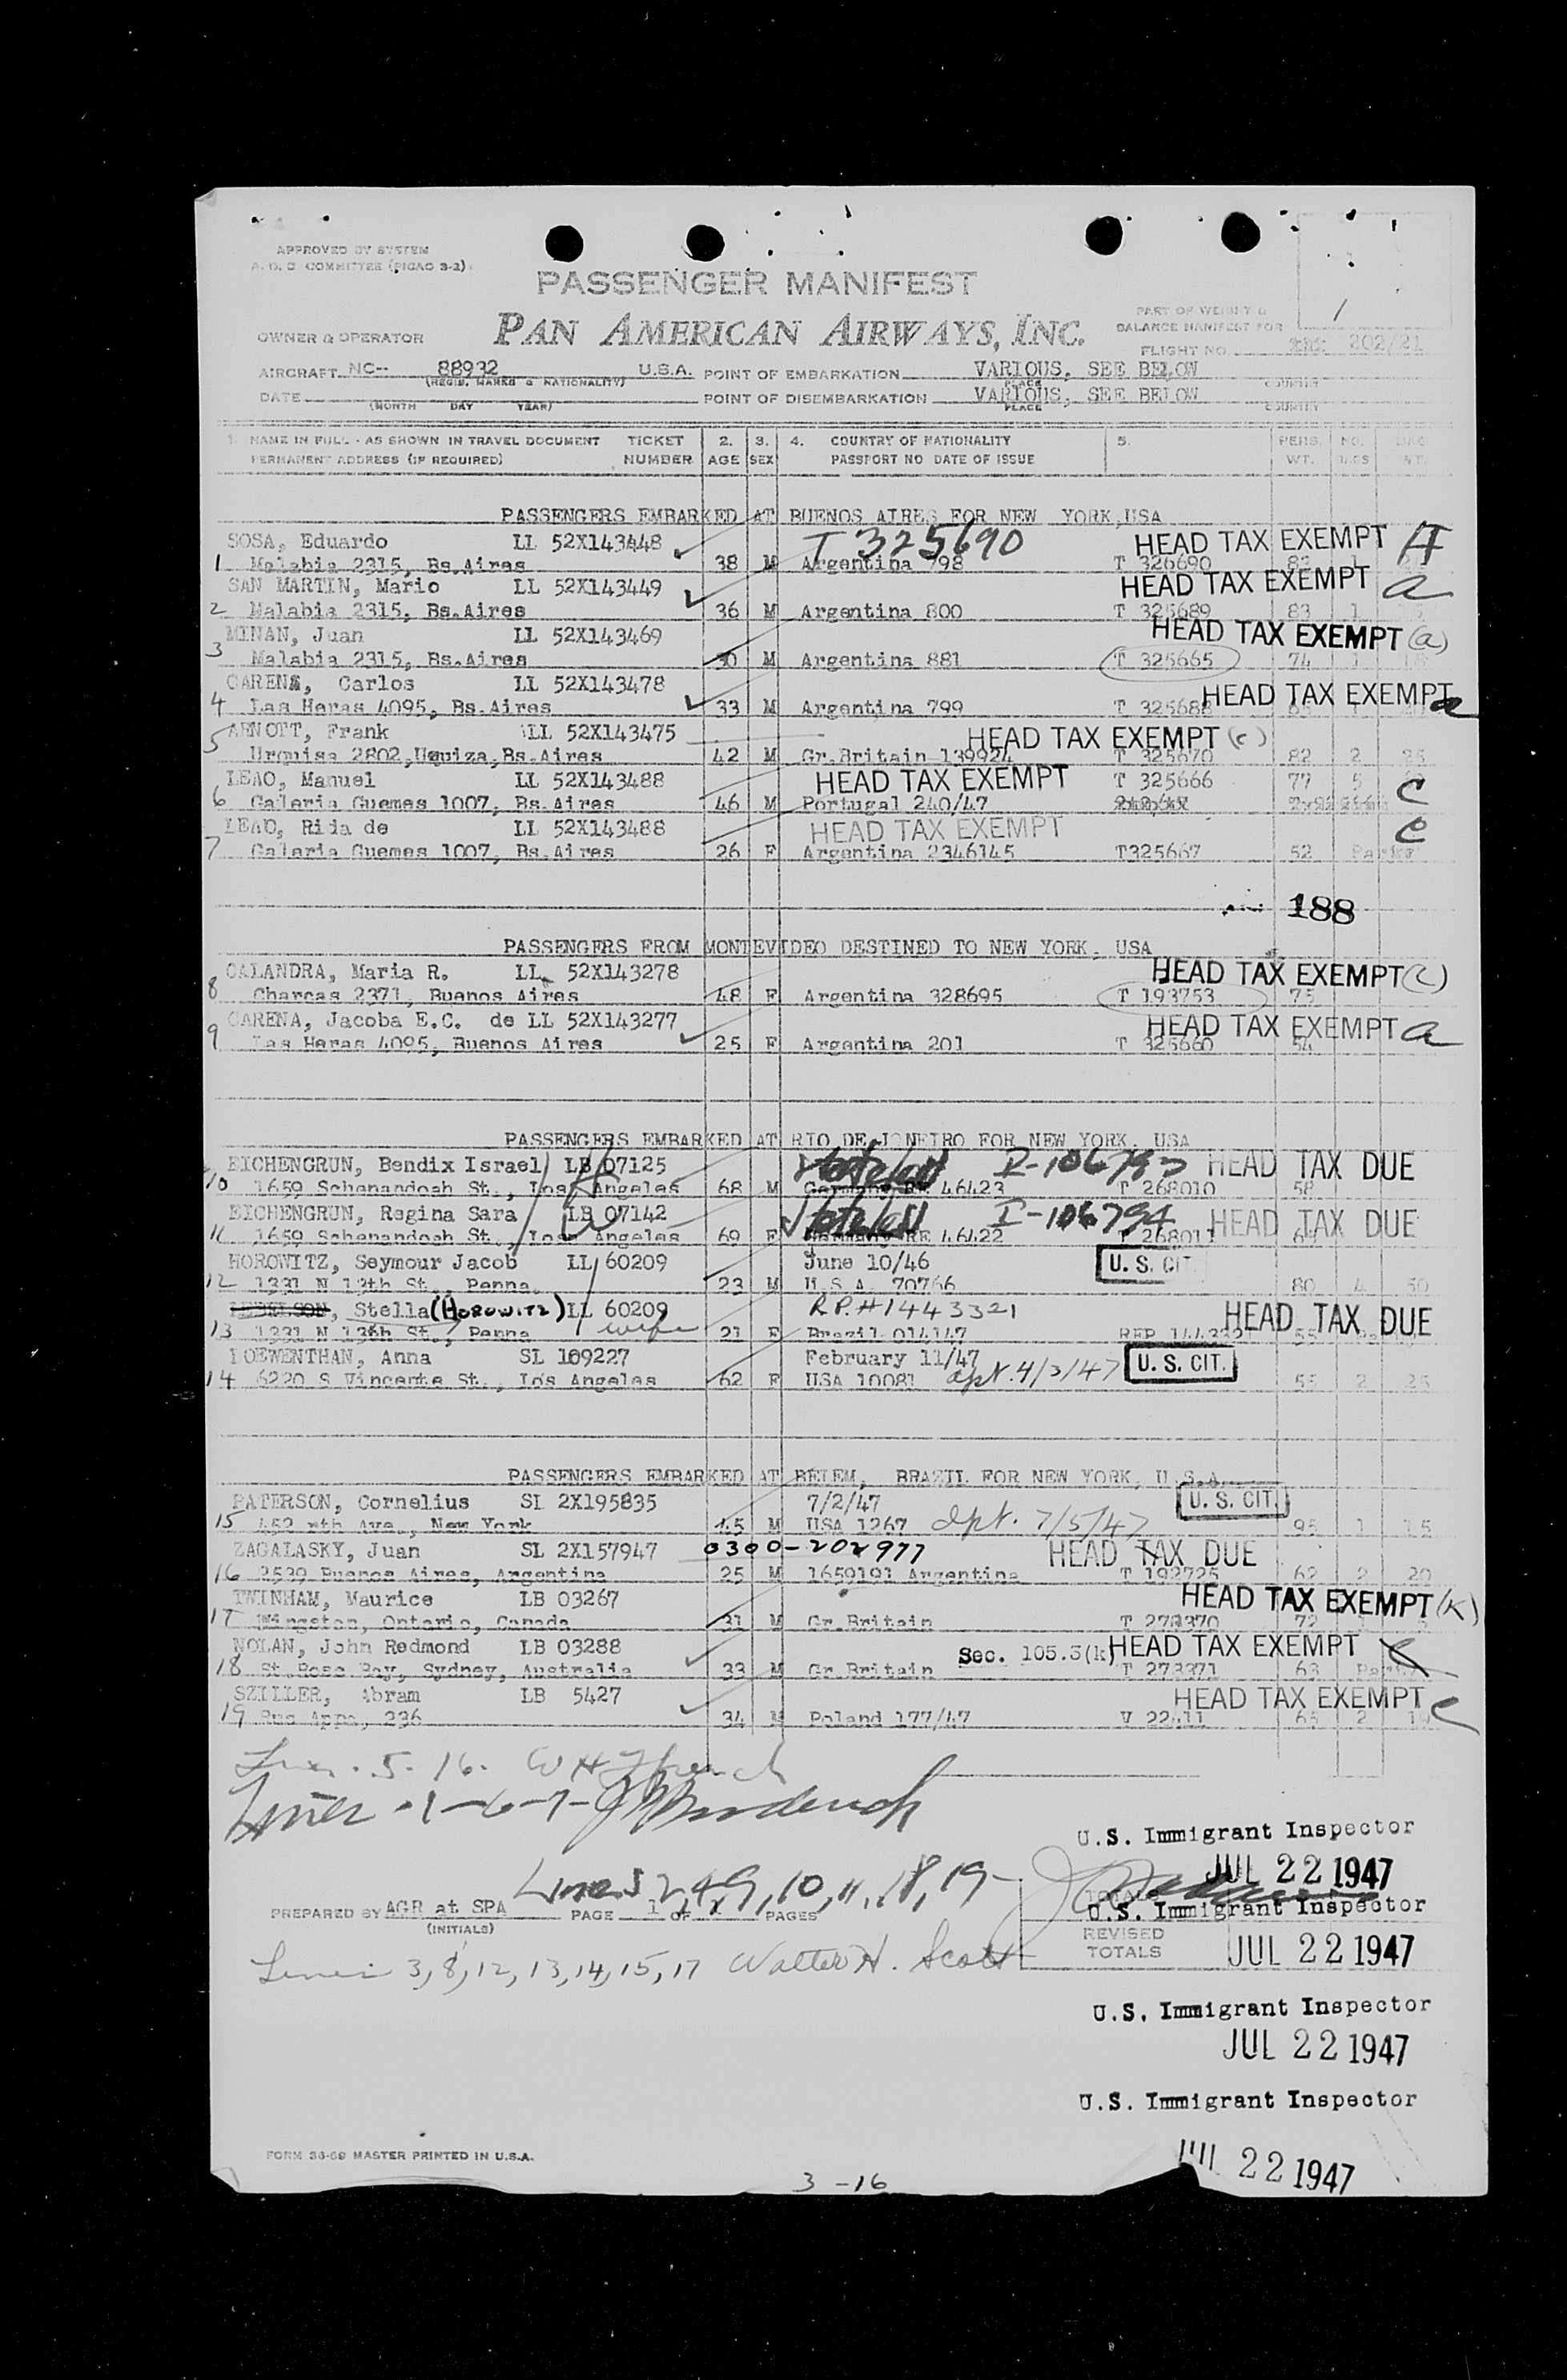 APPROVED BY SYSTEM
A. O. C COMMITTEE (PICAO 3-2)
PASSENGER MANIFEST
PAN AMERICAN AIRWAYS, INC.
PART OF WEIGHT &
BALANCE MANIFEST FOR
1
OWNER & OPERATOR
FLIGHT NO. 202/21
AIRCRAFT NC-- 88932 U.S.A. POINT OF EMBARKATION VARIOUS, SEE BELOW
(REGIS. MARKS & NATIONALITY) PLACE COUNTRY
DATE POINT OF DISEMBARKATION VARIOUS, SEE BELOW
(MONTH DAY YEAR) PLACE COUNTRY
1. NAME IN FULL - AS SHOWN IN TRAVEL DOCUMENT TICKET 2. 3. 4. COUNTRY OF NATIONALITY 5. PERS. NO.
PERMANENT ADDRESS (IF REQUIRED) NUMBER AGE SEX PASSPORT NO DATE OF ISSUE WT. BAGS WT.
PASSENGERS EMBARKED AT BUENOS AIRES FOR NEW YORK, USA
SOSA, Eduardo LL 52X143448 T 325690 HEAD TAX EXEMPT
1 Malabia 2315, Bs.Aires 38 M Argentina 798 T 326690 83 1
SAN MARTIN, Mario LL 52X143449 HEAD TAX EXEMPT a
2 Malabia 2315, Bs.Aires 36 M Argentina 800 T 325689 83 1
MINAN, Juan LL 52X143469 HEAD TAX EXEMPT (a)
3 Malabia 2315, Bs.Aires 30 M Argentina 881 T 325665 74 1
CARENA, Carlos LL 52X143478 HEAD TAX EXEMPT a
4 Las Heras 4095, Bs.Aires 33 M Argentina 799 T 325688
ARNOTT, Frank LL 52X143475 HEAD TAX EXEMPT (c)
5 Urquisa 2802,Uquiza,Bs.Aires 42 M Gr.Britain 139924 T 325670 82 2 25
LEAO, Manuel LL 52X143488 HEAD TAX EXEMPT T 325666 77 5
6 Galeria Guemes 1007, Bs.Aires 46 M Portugal 240/47 C
LEAO, Rida de LL 52X143488 HEAD TAX EXEMPT C
7 Galeria Guemes 1007, Bs.Aires 26 F Argentina 2346145 T325667 52
188
PASSENGERS FROM MONTEVIDEO DESTINED TO NEW YORK, USA
CALANDRA, Maria R. LL 52X143278 HEAD TAX EXEMPT (c)
8 Charcas 2371, Buenos Aires 48 F Argentina 328695 T 193753 75
CARENA, Jacoba E.C. de LL 52X143277 HEAD TAX EXEMPT a
9 Las Heras 4095, Buenos Aires 25 F Argentina 201 T 325660 54
PASSENGERS EMBARKED AT RIO DE JONEIRO FOR NEW YORK, USA
EICHENGRUN, Bendix Israel LB 07125 Stateless I-106793 HEAD TAX DUE
10 1659 Schenandoah St., Los Angeles 68 M Germany RE 46423 T 268010 58
EICHENGRUN, Regina Sara LB 07142 Stateless I-106794 HEAD TAX DUE
11 1659 Schenandoah St., Los Angeles 69 F Germany RE 46422 T 268011
HOROWITZ, Seymour Jacob LL 60209 June 10/46 U. S. CIT.
12 1331 N 13th St., Penna. 23 M U.S.A. 70766 80 4 50
Stella (HOROWITZ) LL 60209 R.P.#1443321 HEAD TAX DUE
13 1331 N 13th St., Penna wife 21 F Brazil 014147 REP 1443321 55
LOEWENTHAN, Anna SL 109227 February 11/47 U. S. CIT.
14 6220 S Vincente St., Los Angeles 62 F USA 10081 dpt. 4/3/47 55 2 25
PASSENGERS EMBARKED AT BELEM, BRAZIL FOR NEW YORK, U.S.A.
PATERSON, Cornelius SL 2X195835 7/2/47 U. S. CIT.
15 452 Ave., New York 45 M USA 1267 dpt. 7/5/47 95 1 15
ZAGALASKY, Juan SL 2X157947 0300-202977 HEAD TAX DUE
16 2539 Buenos Aires, Argentina 25 M 1659191 Argentina T 192725 62 2 20
TWINHAM, Maurice LB 03267 HEAD TAX EXEMPT (K)
17 Kingston, Ontario, Canada 31 M Gr.Britain 72
NOLAN, John Redmond LB 03288 Sec. 105.3(k) HEAD TAX EXEMPT
18 St.Rose Bay, Sydney, Australia 33 M Gr.Britain T 273371 63
SZILLER, Abram LB 5427 HEAD TAX EXEMPT c
19 Rus Appa, 236 34 M Poland 177/47 65 2
Lines 5. 16. W H French
Lines - 1-6-7-
U.S. Immigrant Inspector
JUL 22 1947
Lines 2,4,9,10,11,18,19-
PREPARED BY AGR at SPA PAGE 1 OF 1 PAGES
(INITIALS)
TOTALS
U.S. Immigrant Inspector
REVISED
TOTALS
JUL 22 1947
Lines 3,8,12,13,14,15,17 Walter H. Scott
U.S. Immigrant Inspector
JUL 22 1947
U.S. Immigrant Inspector
FORM 36-69 MASTER PRINTED IN U.S.A.
JUL 22 1947
3 -16